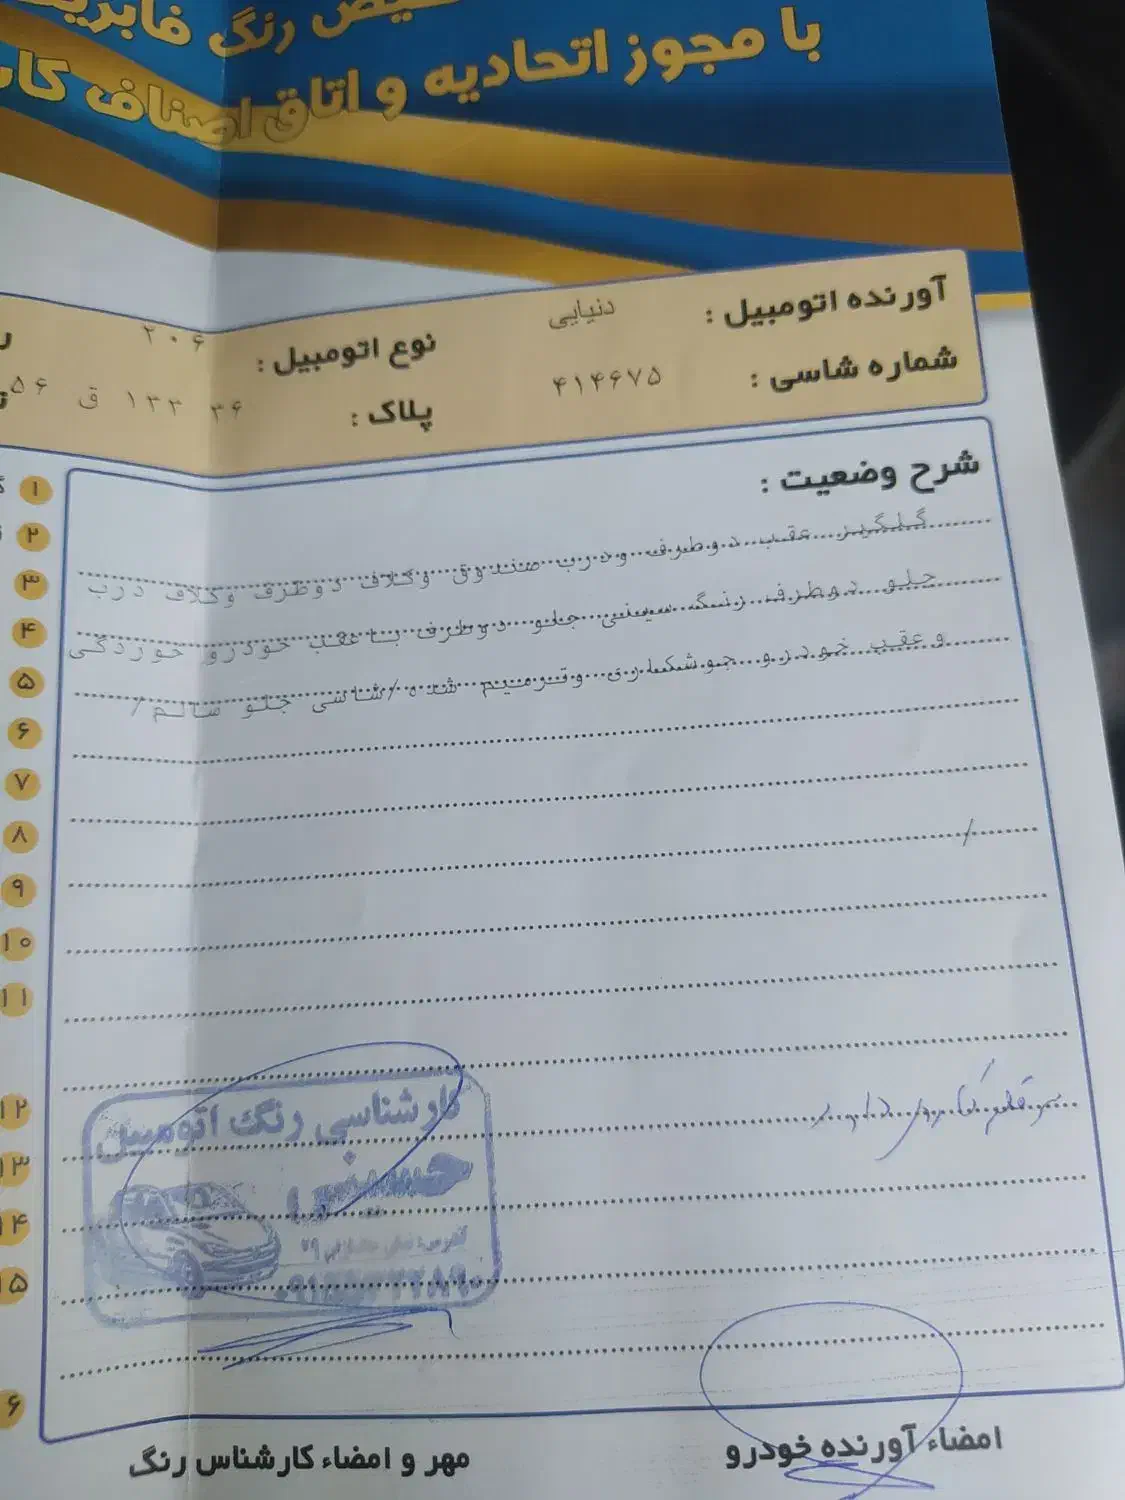 رنگ فابریک
با مجوز اتحادیه و اتاق اصناف
آورنده اتومبیل : دنیایی
نوع اتومبیل : ۲۰۶
شماره شاسی : ۴۱۴۶۷۵
پلاک : ۳۶ ۱۳۳ ق ۵۶
شرح وضعیت :
گلگیر عقب دوطرف ودرب صندوق وکلاف دوطرف وکلاف درب
جلو دوطرف رنگ سینی جلو دوطرف با عقب خودرو خوردگی
و عقب خودرو جوشکاری وترمیم شده /شاسی جلو سالم/
/
۱
۲
۳
۴
۵
۶
۷
۸
۹
۱۰
۱۱
۱۲
۱۳
۱۴
۱۵
کارشناسی رنگ اتومبیل
امضاء آورنده خودرو
مهر و امضاء کارشناس رنگ